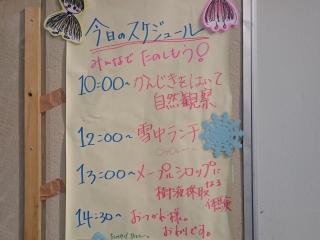 今日のスケジュール
みんなで たのしもう!
10:00~ かんじきをはいて
自然観察
12:00~ 雪中ランチ
13:00~ メープルシロップに
なる
樹液採取
体験
14:30~ おつかれ様。
おわりです。